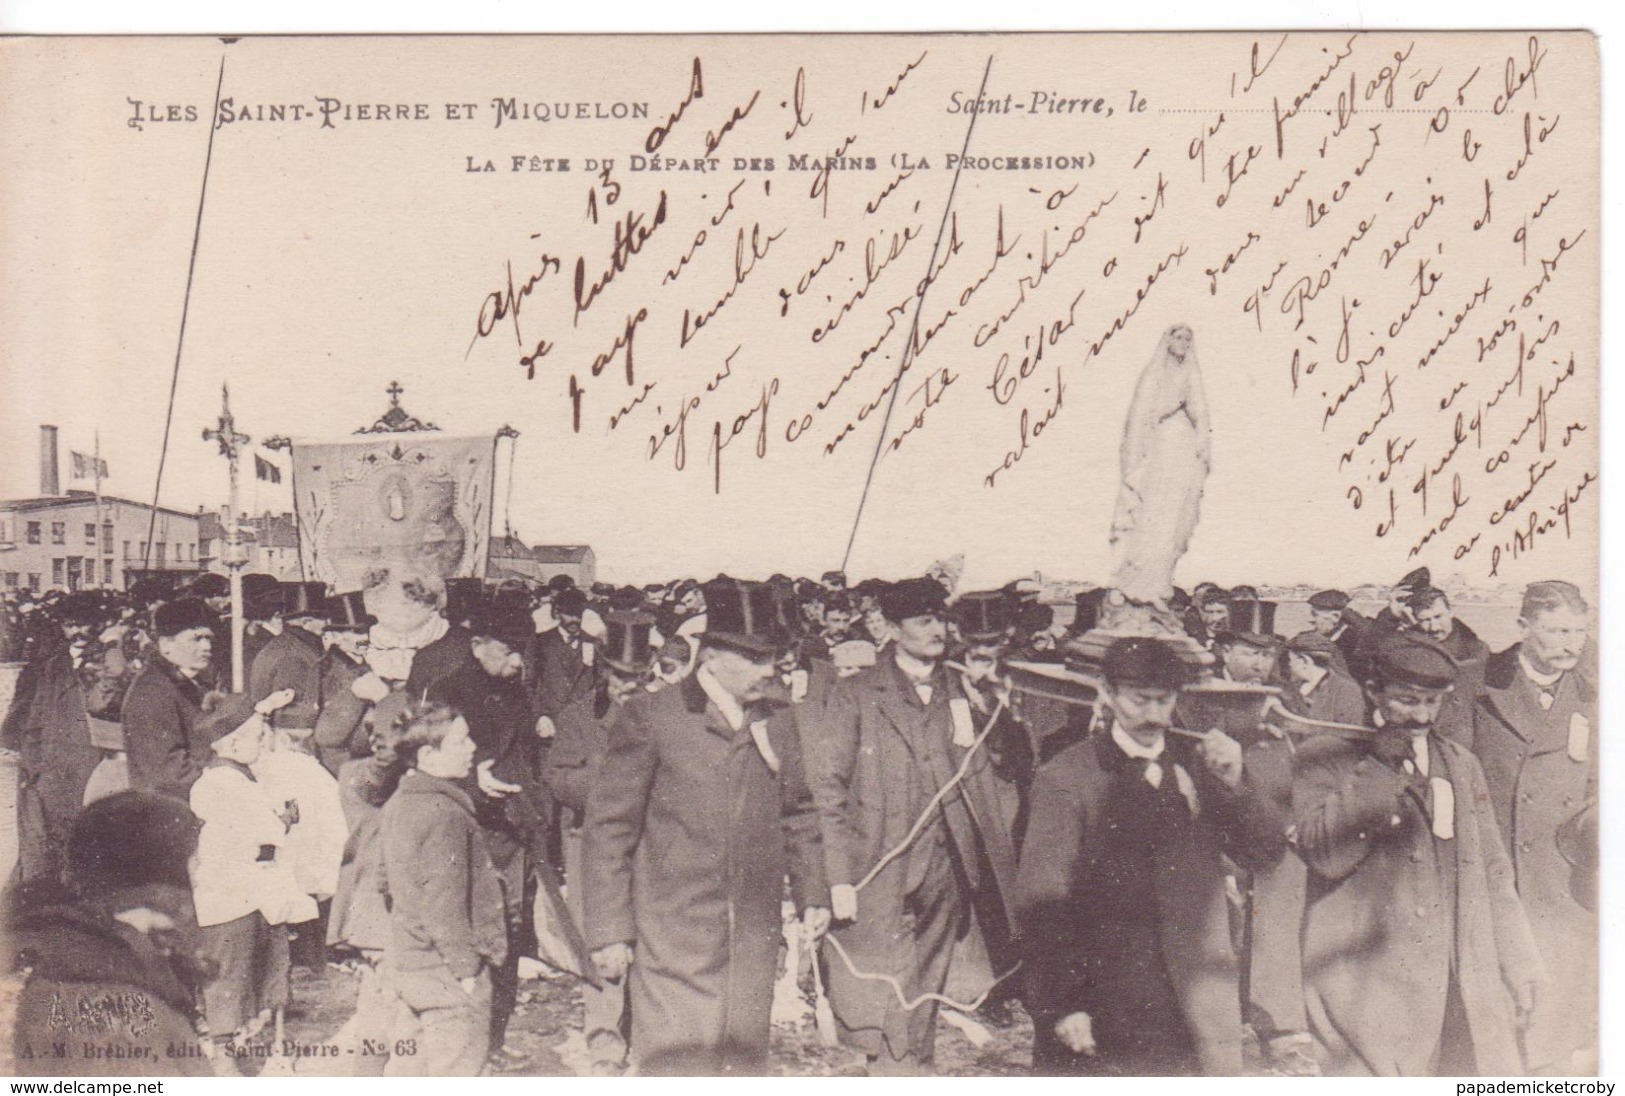 ILES SAINT-PIERRE ET MIQUELON
Saint-Pierre, le
LA FÊTE DU DÉPART DES MARINS (LA PROCESSION)
Après 13 ans
de luttes en
pays noir, il
me semble qu'un
séjour dans un
pays civilisé
conviendrait
maintenant à
notre condition -
César a dit qu'il
valait mieux être premier
dans un village
que second à
Rome - Or
là je serais le chef
indiscuté et celà
vaut mieux que
d'être en sous-ordre
et quelquefois
mal compris
au centre de
l'Afrique
A.-M. Bréhier, édit. Saint-Pierre - No 63
www.delcampe.net
papademicketcroby